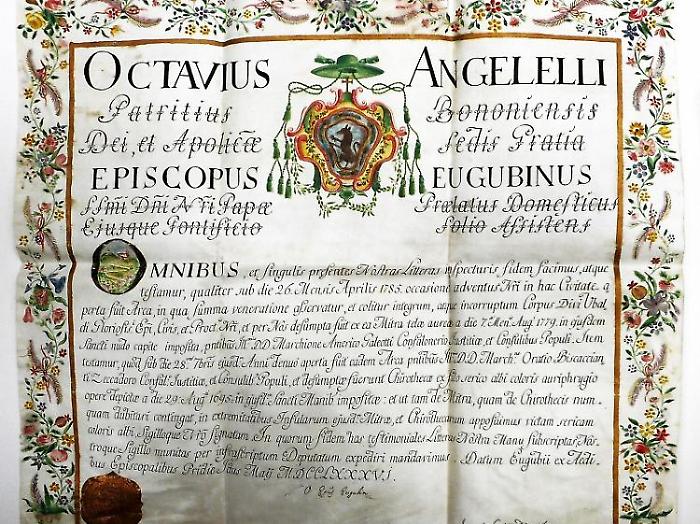 OCTAVIUS ANGELELLI
Patritius Bononiensis
Dei, et Aplicæ Sedis Gratia
EPISCOPUS EUGUBINUS
SSmi Dñi Ñri Papæ Prælatus Domesticus
Ejusque Pontificio Solio Assistens
OMNIBUS, et singulis presentes Nostras Litteras inspecturis fidem facimus, atque
testamur, qualiter sub die 26. Mensis Aprilis 1785. occasione adventus Ñri in hac Civitate a
perta fuit Arca, in qua summa veneratione asservatur, et colitur integrum, atque incorruptum Corpus Divi Ubal
di Gloriosi Epi, Civis, et Proct Ñri, et per Nos desumpta fuit ex ea Mitra tela aurea a die 7. Men. Aug. 1779. in ejusdem
Sancti nudo capite imposita, pntibus DD. Marchione Americo Galeotti Confalonerio Justitiæ, et Consulibus Populi. Item
testamur, quod sub die 28. ejusd. Anni denuo aperta fuit eadem Arca pntibus DD. March. Oratio
Zeccadoro Confal. Justitiæ, et Consulib. Populi, et desumptæ fuerunt Chirothecæ ex serico albi coloris auriphrygio
opere depictæ a die 29. Aug. 1695. in ejusd. Sancti Manib. impositæ: et ut tam de Mitra, quam de Chirothecis num-
quam dubitari contingat, in extremitatibus Infularum ejusd. Mitræ, et Chirothecarum apposuimus vittam sericam
coloris albi Sigilloque Ñro signatam. In quorum fidem has testimoniales Litteras Nostra Manu subscriptas Nos-
troque Sigillo munitas per infrascriptum Deputatum expediri mandavimus. Datum Eugubii ex Ædi-
bus Episcopalibus Pridie Idus Maji MDCCLXXXVI.